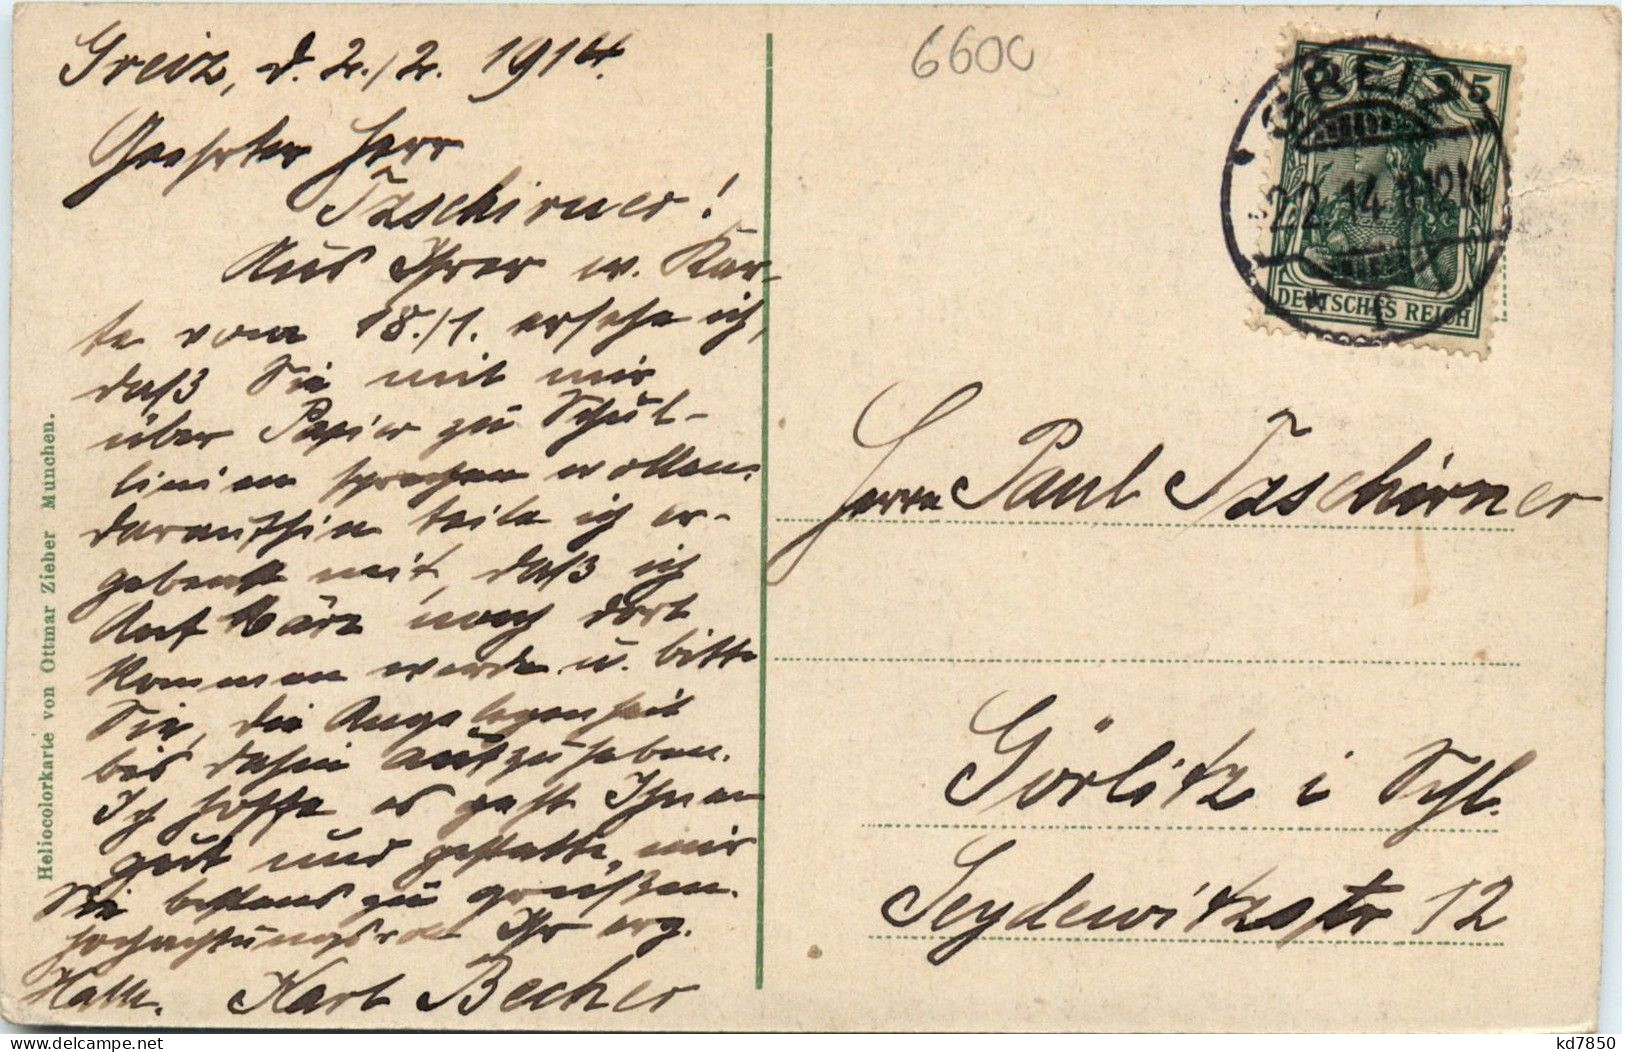 Greiz, d. 2./2. 1914.
Geehrter Herr
Tzschirner!
Aus Ihrer w. Kar-
te vom 18./1. ersehe ich,
daß Sie mit mir
über Papier zu Schul-
linien sprechen wollen.
daraufhin teile ich er-
gebenst mit, daß ich
Anf. März noch dort
kommen werde u. bitte
Sie, die Angelegenheit
bis dahin aufzuheben.
Ich hoffe es geht Ihnen
gut und gestatte, mir
Sie bestens zu grüßen.
hochachtungsvoll Ihr erg.
Karl Becher
Heliocolorkarte von Ottmar Zieher München.
6600
GREIZ
2.2.14.11-12N
5
DEUTSCHES REICH
Herrn Paul Tzschirner
Görlitz i Schl.
Seydewitzstr 12
kd7850